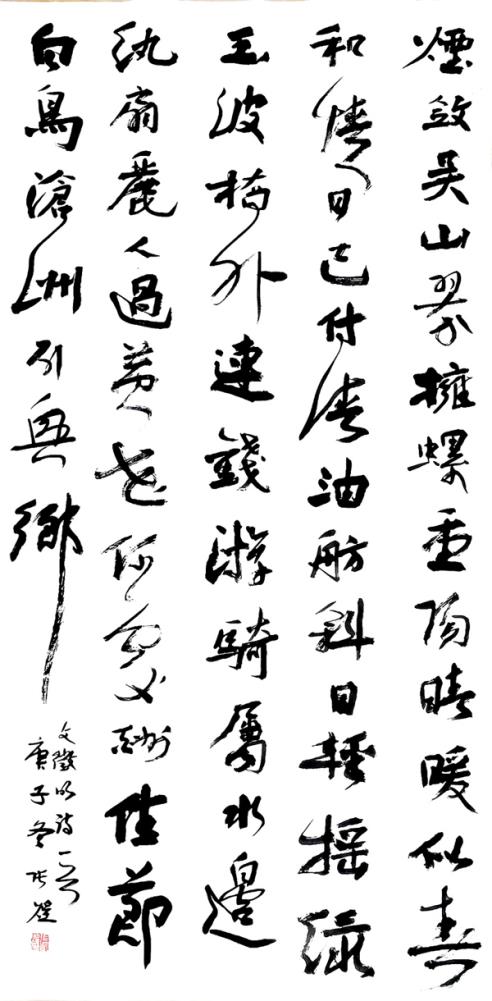 煙斂吳山翠擁螺重陽晴暖似春
和日已付油舫斜日輕搖綠
玉波橋外連錢游騎屬水邊
紈扇麗人過黃花佳節
白鳥滄洲引興
文徵明詩一首
庚子冬張